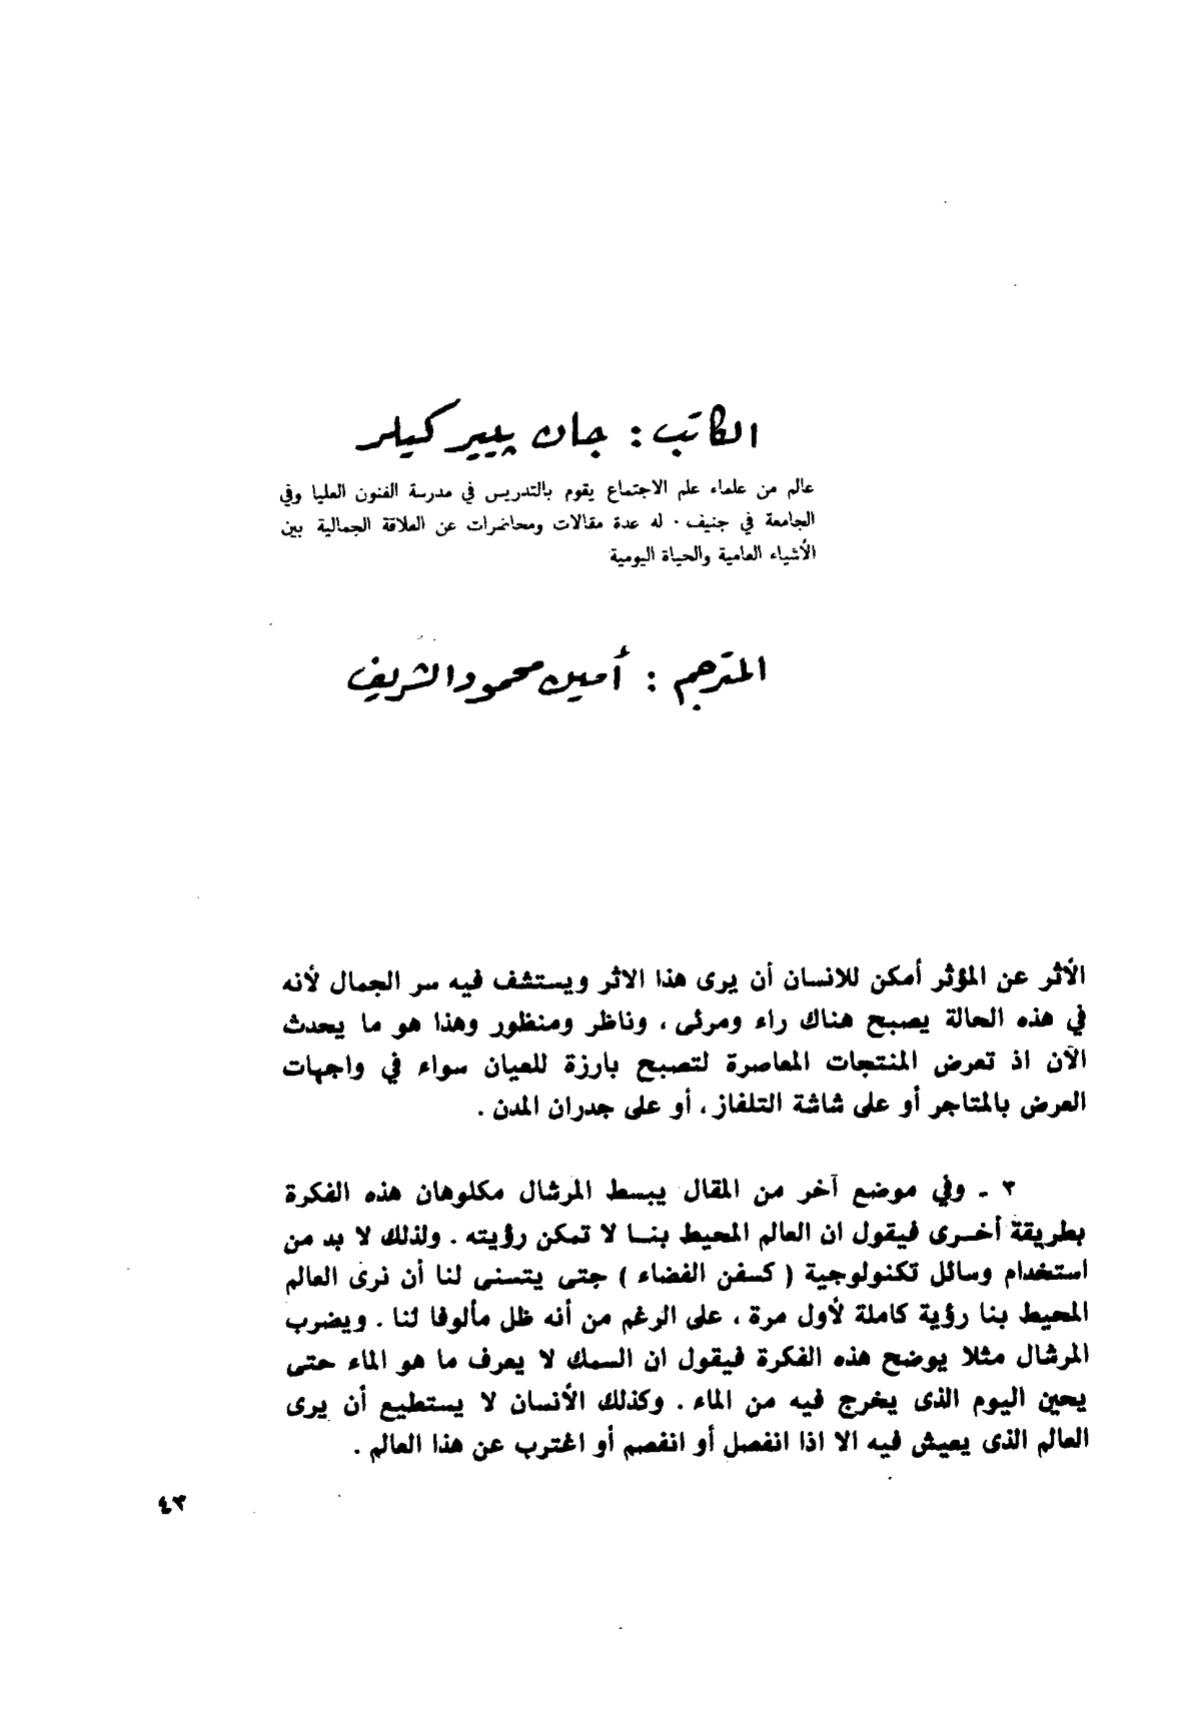 الكاتب : جان بيير كيلر
عالم من علماء علم الاجتماع يقوم بالتدريس في مدرسة الفنون العليا وفي
الجامعة في جنيف . له عدة مقالات ومحاضرات عن العلاقة الجمالية بين
الأشياء العامية والحياة اليومية
المترجم : أمين محمود الشريف
الأثر عن المؤثر أمكن للانسان أن يرى هذا الاثر ويستشف فيه سر الجمال لأنه
في هذه الحالة يصبح هناك راء ومرئى ، وناظر ومنظور وهذا هو ما يحدث
الآن اذ تعرض المنتجات المعاصرة لتصبح بارزة للعيان سواء في واجهات
العرض بالمتاجر أو على شاشة التلفاز ، أو على جدران المدن .
٣ - وفي موضع آخر من المقال يبسط المرشال مكلوهان هذه الفكرة
بطريقة أخرى فيقول ان العالم المحيط بنا لا تمكن رؤيته . ولذلك لا بد من
استخدام وسائل تكنولوجية ( كسفن الفضاء ) جتى يتسنى لنا أن نرى العالم
المحيط بنا رؤية كاملة لأول مرة ، على الرغم من أنه ظل مألوفا لنا . ويضرب
المرشال مثلا يوضح هذه الفكرة فيقول ان السمك لا يعرف ما هو الماء حتى
يحين اليوم الذى يخرج فيه من الماء . وكذلك الأنسان لا يستطيع أن يرى
العالم الذى يعيش فيه الا اذا انفصل أو انفصم أو اغترب عن هذا العالم .
٤٣